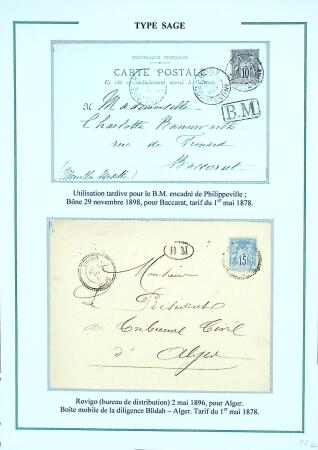 TYPE SAGE
RÉPUBLIQUE FRANÇAISE
CARTE POSTALE
Ce côté est exclusivement réservé à l'adresse
10
B.M
M Mademoiselle
Charlotte
rue de
Baccarat
Utilisation tardive pour le B.M. encadré de Philippeville ;
Bône 29 novembre 1898, pour Baccarat, tarif du 1er mai 1878.
B M
15
Monsieur
Le Président
du Tribunal Civil
d'Alger
Rovigo (bureau de distribution) 2 mai 1896, pour Alger.
Boîte mobile de la diligence Blidah – Alger. Tarif du 1er mai 1878.